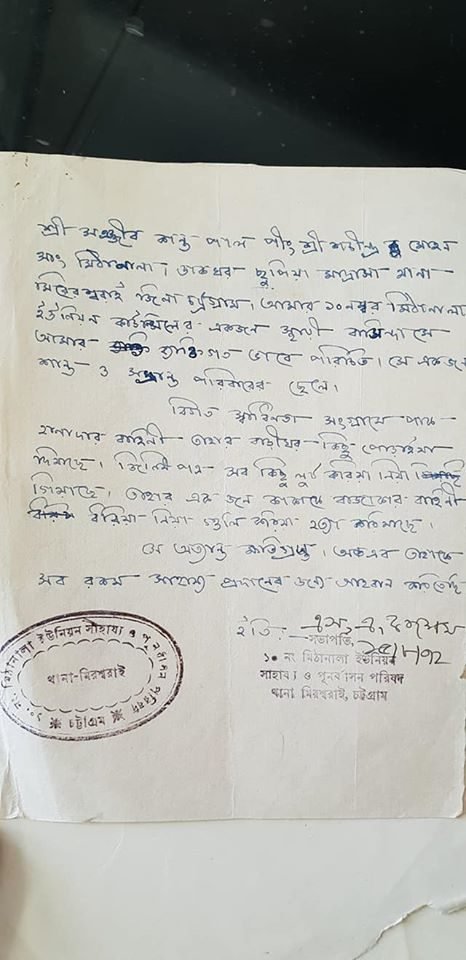 শ্রী সঞ্জীব কান্ত পাল পীং শ্রী শচীন্দ্র মোহন
সাং মিঠানালা। ডাকঘর ছুপিয়া মাদ্রাসা থানা
মিরেরশ্বরাই জিলা চট্টগ্রাম। আমার ১০নম্বর মিঠানালা
ইউনিয়ন কাউন্সিলের একজন স্থায়ী বাসিন্দা সে
আমার ব্যক্তিগত ভাবে পরিচিত। সে একজন
শান্ত ও সম্ভ্রান্ত পরিবারের ছেলে।
বিগত স্বাধিনতা সংগ্রামে পাক
হানাদার বাহিনী তাহার বাড়ীঘর কিছু পোড়াইয়া
দিয়াছে। জিনিষ পত্র সব কিছু লুট করিয়া নিয়া
গিয়াছে। তাহার এক জন কাকাকে রাজাকার বাহিনী
ধরিয়া নিয়া গুলি করিয়া হত্যা করিয়াছে।
সে অত্যান্ত ক্ষতিগ্রস্ত। অতএব তাহাকে
সব রকম সাহায্য প্রদানের জন্যে আহবান করিতেছি
ইতি:
সভাপতি,
১০ নং মিঠানালা ইউনিয়ন
সাহায্য ও পুনর্বাসন পরিষদ
থানা মিরশ্বরাই, চট্টগ্রাম
১০ নং মিঠানালা ইউনিয়ন সাহায্য ও পুনর্বাসন পরিষদ
থানা-মিরশ্বরাই
চট্টগ্রাম